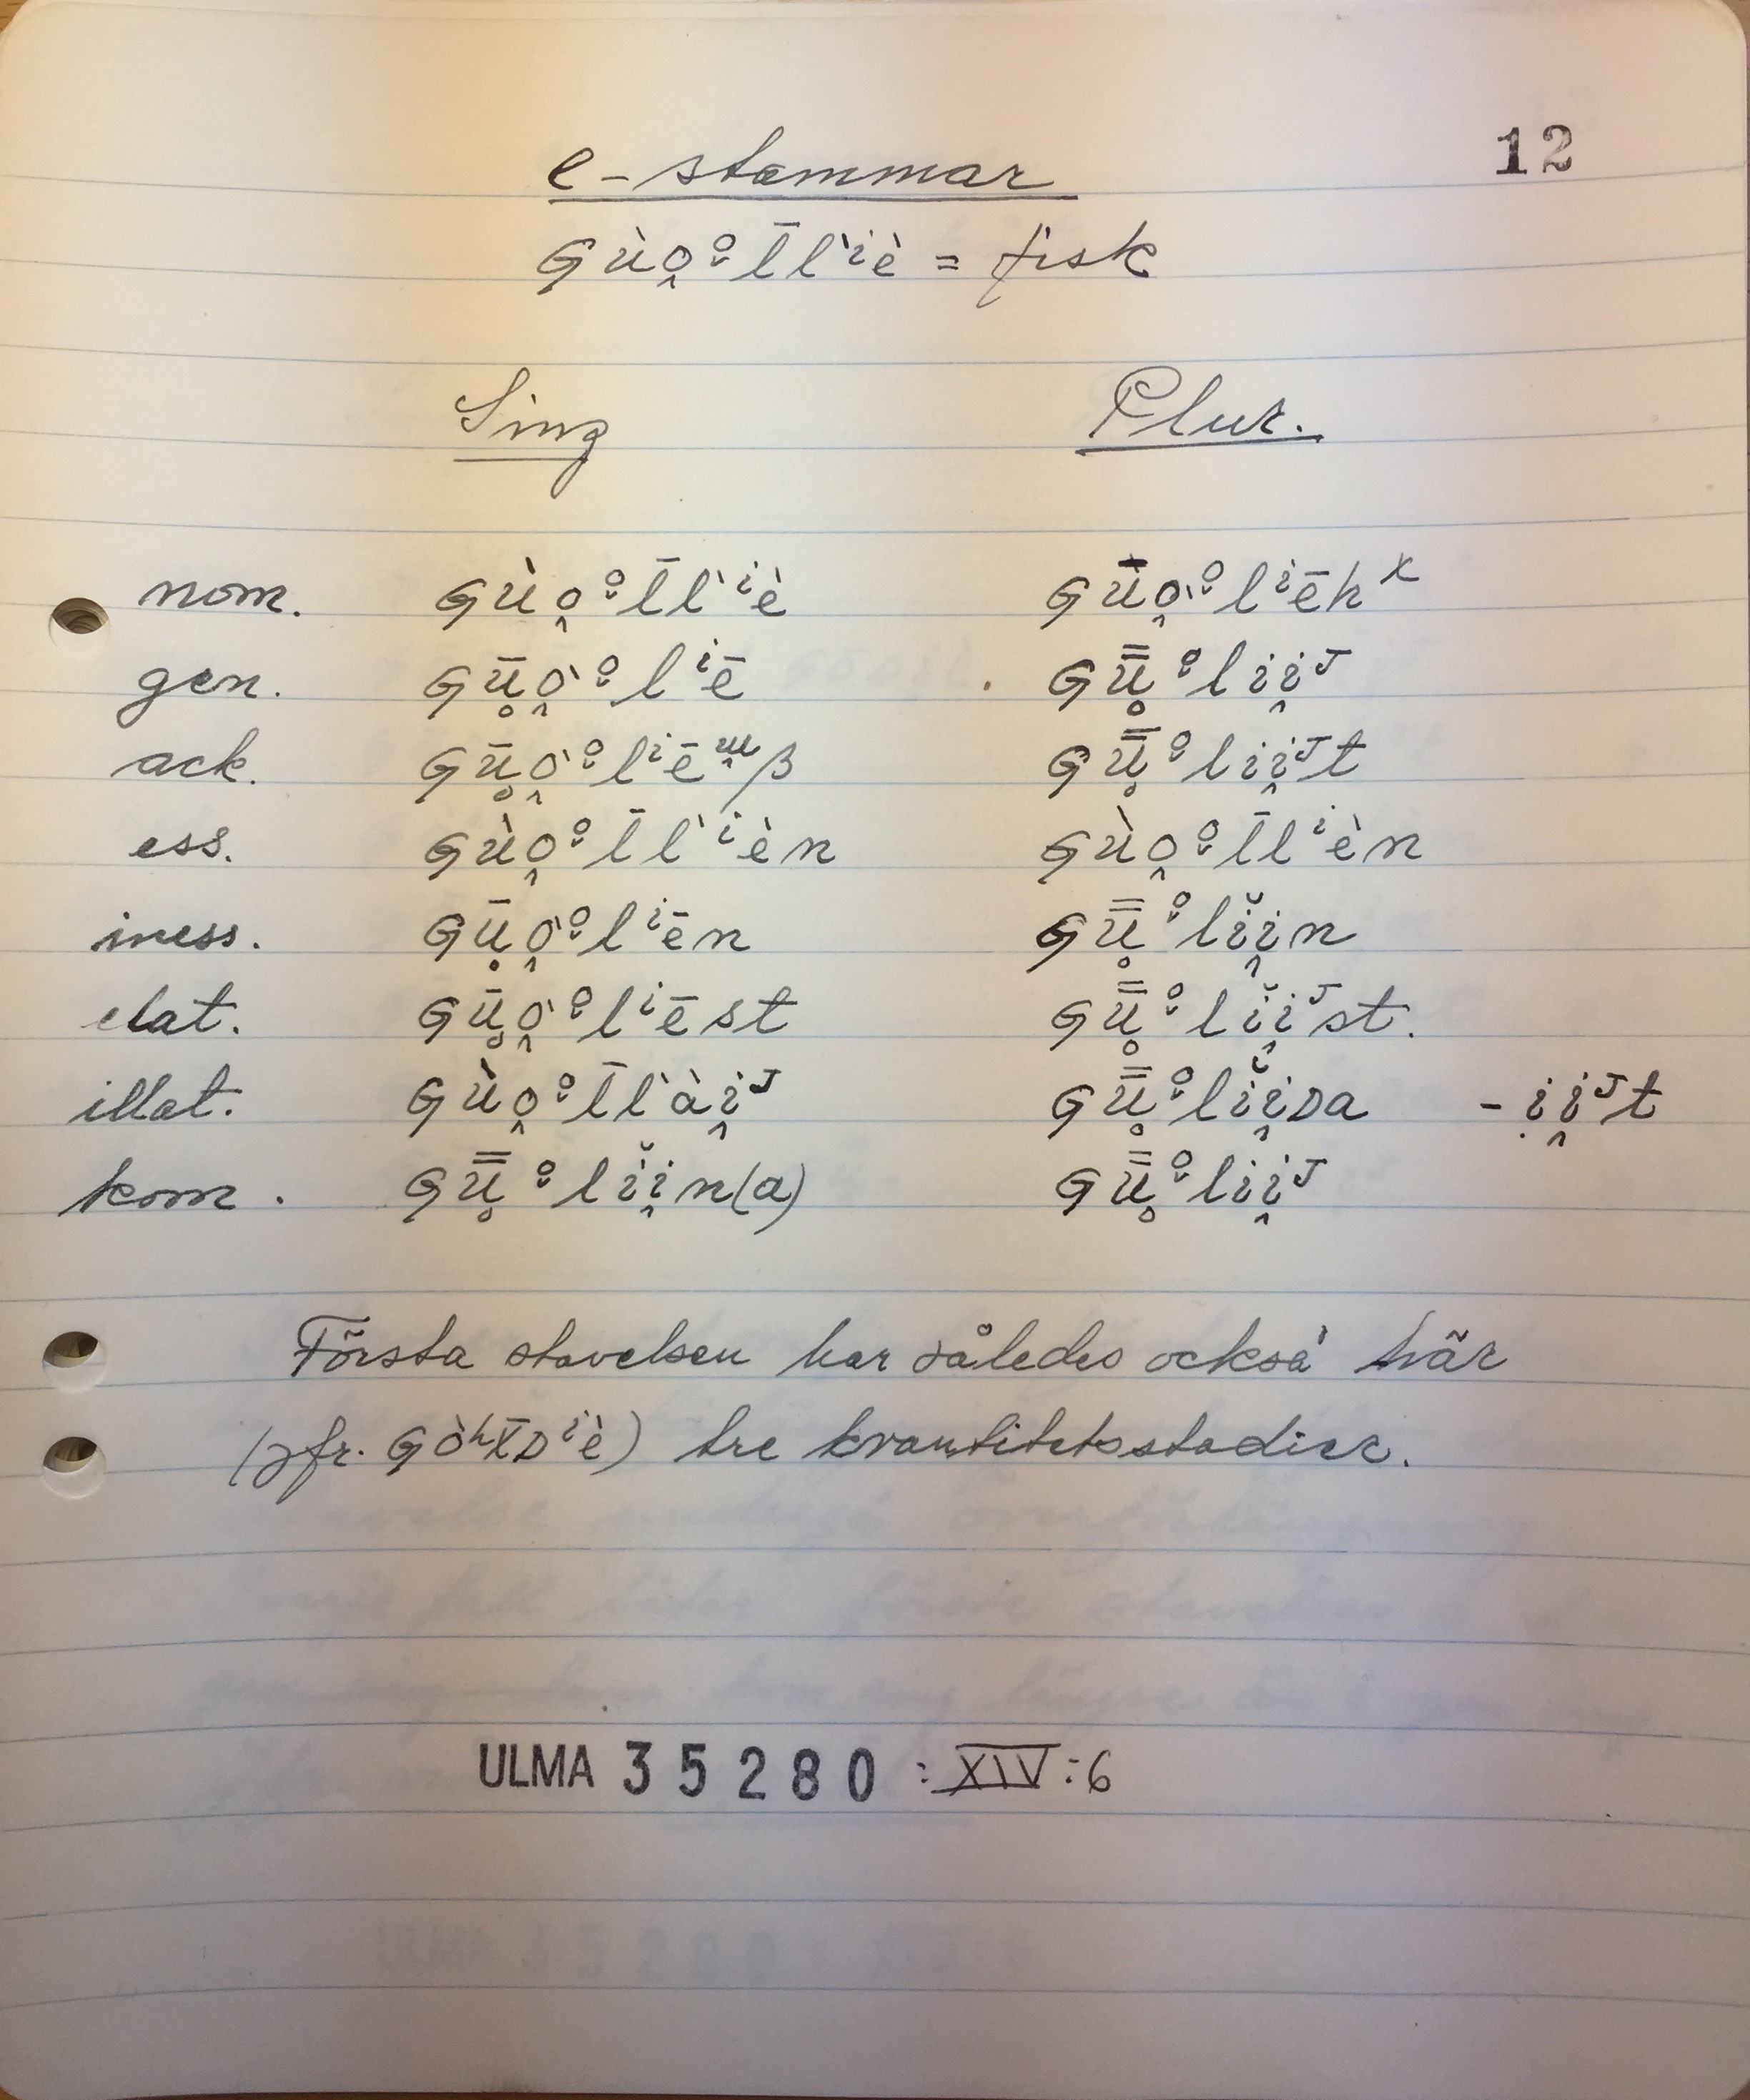 12
e-stammar
Gù̀o̭°l̄l'ⁱè = fisk
Sing Plur.
nom. Gùo̭°l̄l'ⁱè Gū̀o̭'°lⁱēhᵡ
gen. Gū̥o̭'°lⁱē Gū̥̄°lii̭ᴶ
ack. Gū̥o̭'°lⁱēᵚβ Gū̥̄°lii̭ᴶt
ess. Gùo̭°l̄l'ⁱèn Gùo̭°l̄lⁱèn
iness. Gū̥o̭'°lⁱēn Gū̥̄°lĭi̭n
elat. Gū̥o̭'°lⁱēst Gū̥̄°lĭi̭ᴶst.
illat. Gùo̭°l̄l'ài̭ᴶ Gū̥̄°lĭi̭ᴅa -ii̭ᴶt
kom. Gū̥̄°lĭi̭n(a) Gū̥̄°lii̭ᴶ
Första stavelsen har således också här
(jfr. Gòʰx̄ᴅⁱè) tre kvantitetsstadier.
ULMA 35280 : XIV:6